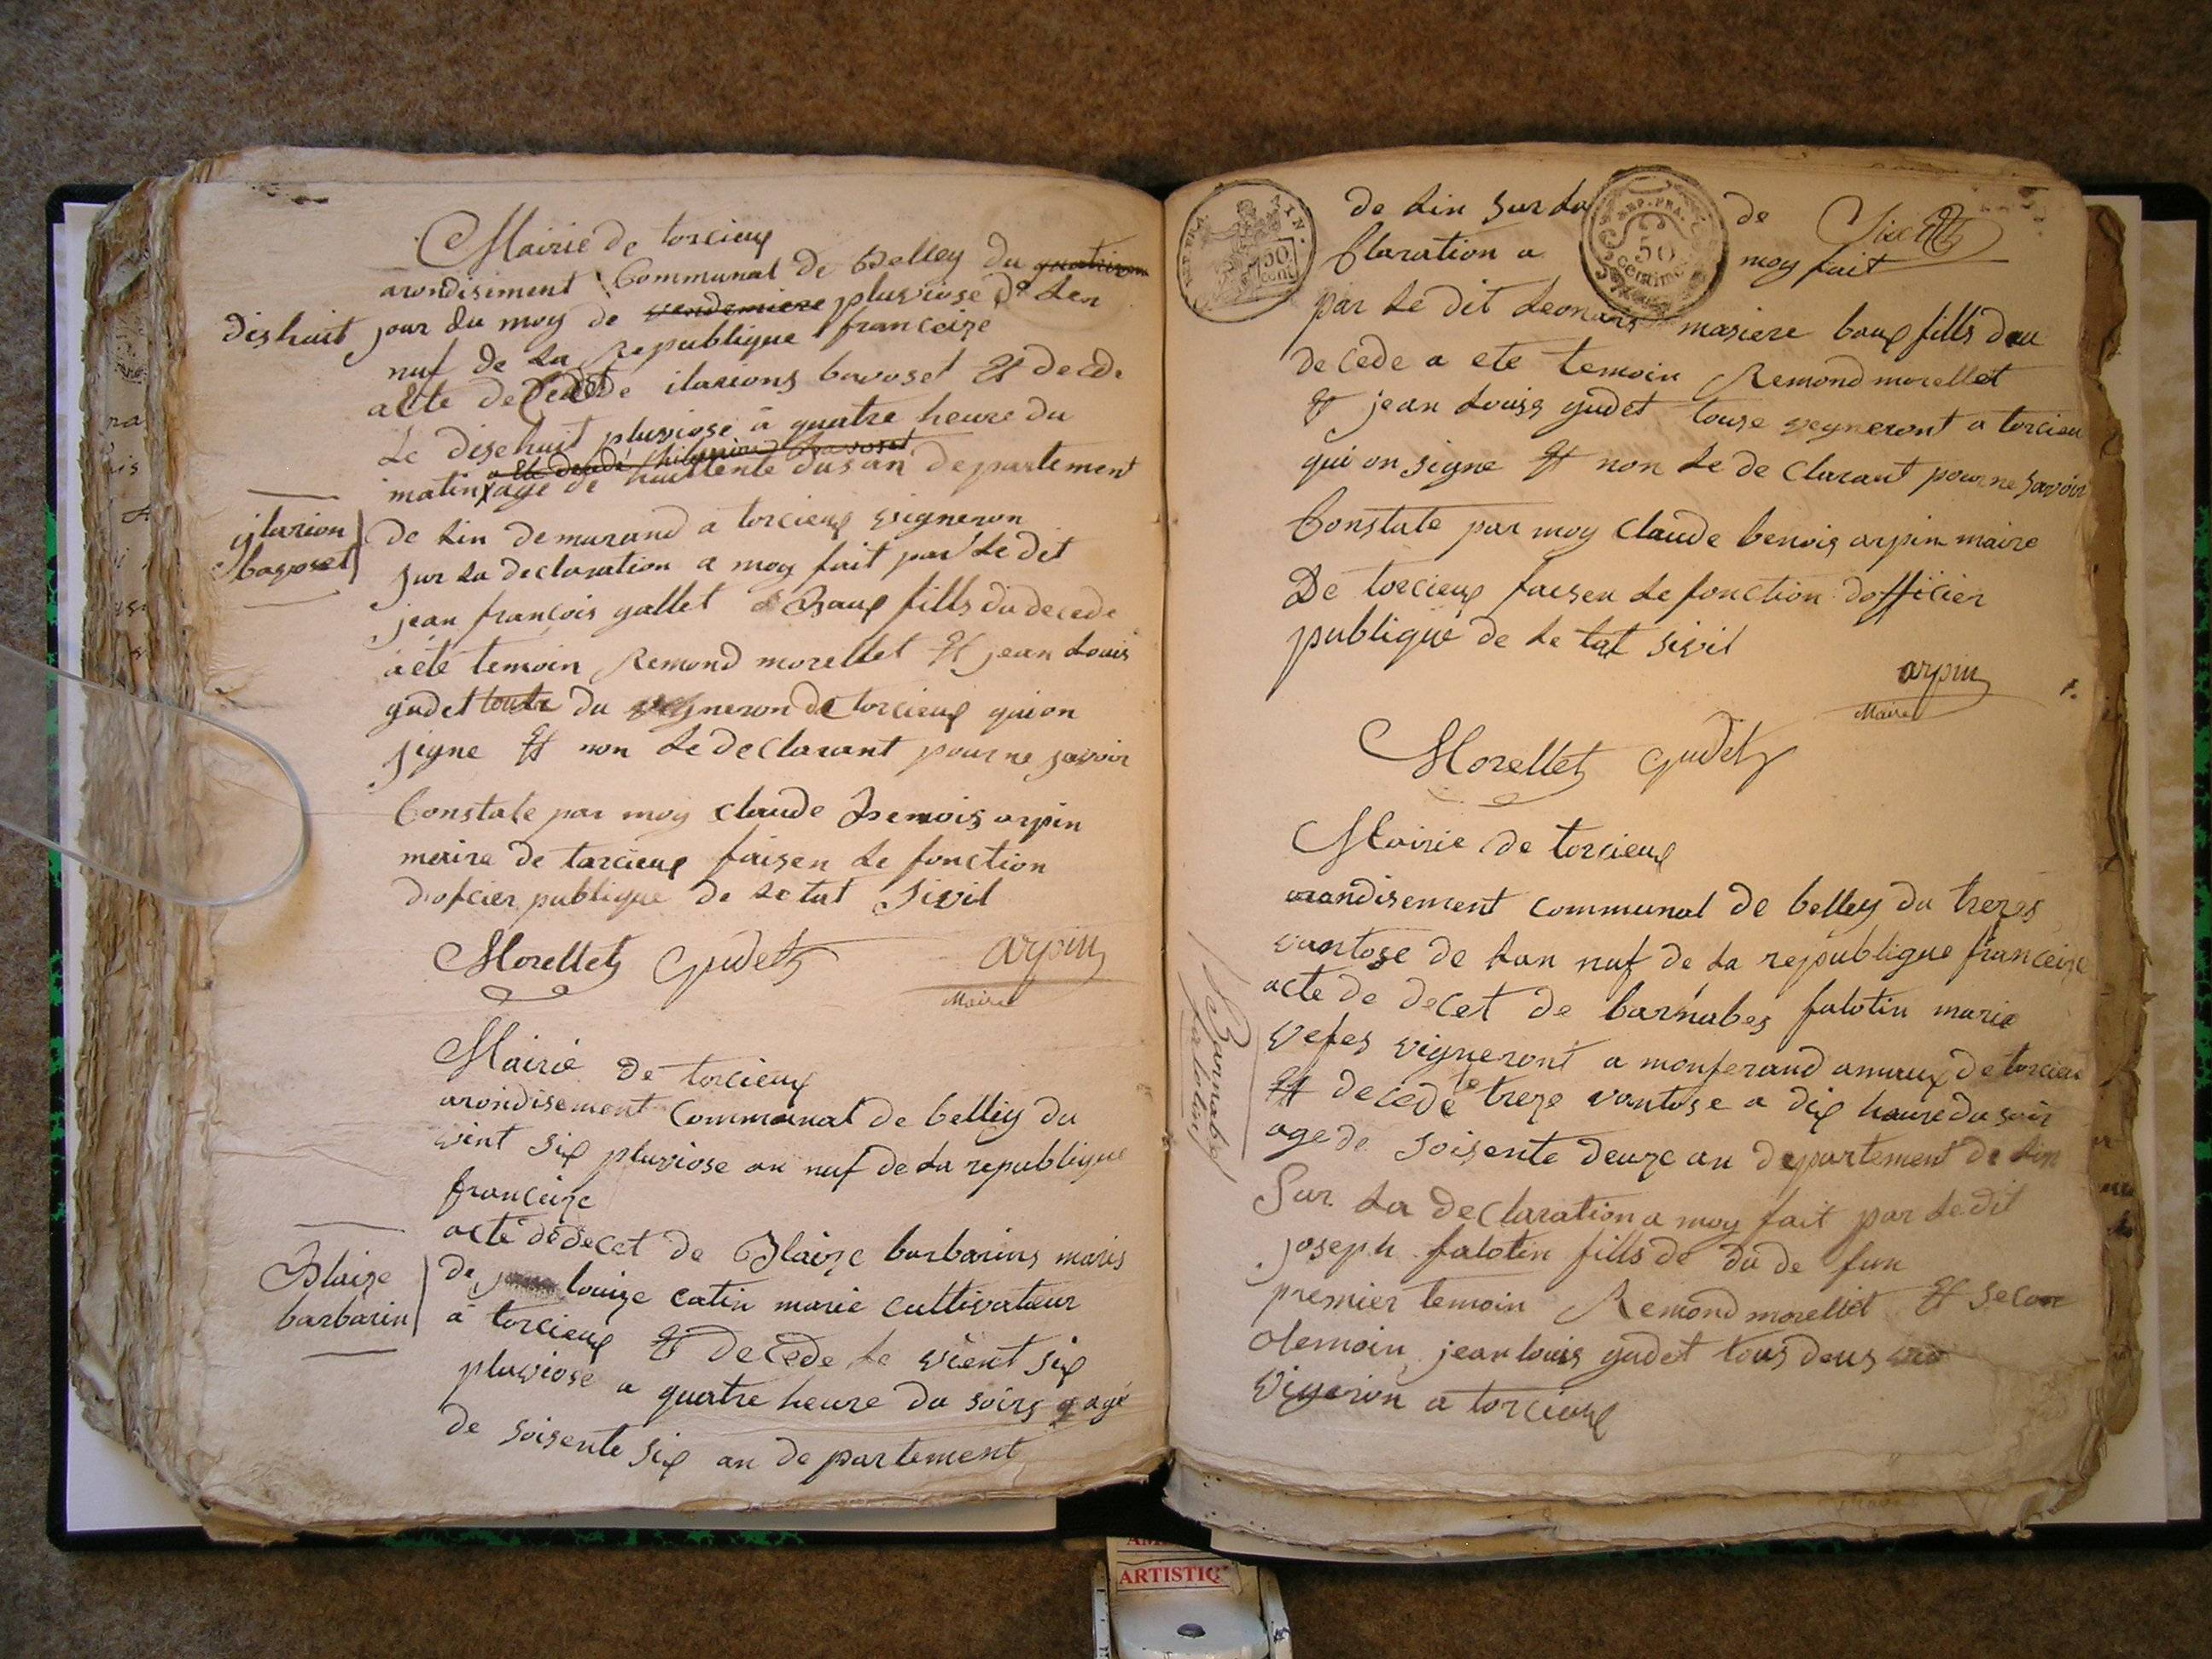 Mairie de torcieux
arondisiment Communal de Belley du
dishuit jour du moy de vendemiere pluviose d Len
nuf de La Republique franceize
acte de Decet de ilarions bavoset Et decede
Le disehuit pluviose à quatre heure du
a ete decedé hilarion bavoset
matin age de huittente dus an departement
ilarion
bavoset
de Lin demurand a torcieux vigneron
sur La declaration a moy fait par Le dit
jean françois gallet Baux fills du decede
a été temoin Remond morellet Et jean Louis
gudet toute du vegneron de torcieux qui on
signe Et non Le declarant pour ne savoir
Constate par moy claude Benois arpin
maire de torcieux faisen Le fonction
dofcier publique de Letat Sivil
Morellet Gudet arpin
Maire
Mairie de torcieux
arondisement Communal de belley du
vint six pluviose an nuf de La republique
franceize
acte de decet de Blaize barbarins maris
Blaize
barbarin
de louize catin marie cultivateur
à torcieux Et decede Le vient six
pluviose a quatre heure du soirs agé
de soisente six an departement
de Lin sur La de
Claration a moy fait
REP. FRA.
50
centime
par Le dit Leonars masiere baux fills deu
decede a ete temoin Remond morellet
Et jean Louis gudet touse vegneront a torcieu
qui on signe Et non Le de Clarant pour ne savoir
Constate par moy Claude benois arpin maire
De torcieux faisen Le fonction dofficier
publique de Le tat sivil
arpin
Maire
Morellet Gudet
Mairie de torcieux
arandisement communal de belley du trezes
vantose de Lan nuf de La republique franceize
acte de decet de barnabes falotin marie
vefes vigneront a monferand amaux de torcieu
Et decede le treze vantose a dix heure du soir
age de soisente deuze an departement de Lin
Barnabe
falotin
Sur La declaration a moy fait par Le dit
joseph falotin fills de du de fun
premier temoin Remond morellet Et secon
otemoin jean louis gudet tous deus
vigeron a torcieux
ARTISTIQ